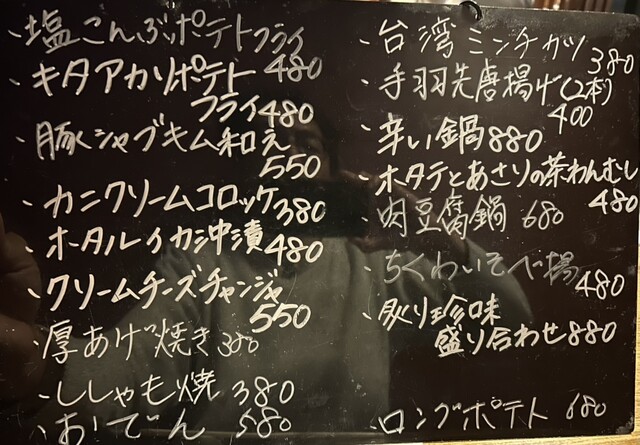 ・塩こんぶポテトフライ
480
・キタアカリポテト
フライ480
・豚シャブキムチ和え
550
・カニクリームコロッケ380
・ホタルイカ沖漬480
・クリームチーズチャンジャ
550
・厚あげ焼き380
・ししゃも焼 380
・おでん 580
・台湾ミンチカツ
380
・手羽先唐揚げ(2本)
400
・辛い鍋880
・ホタテとあさりの茶わんむし
480
・肉豆腐鍋 680
・ちくわいそべ揚
480
・炙り珍味
盛り合わせ880
・ロングポテト 680